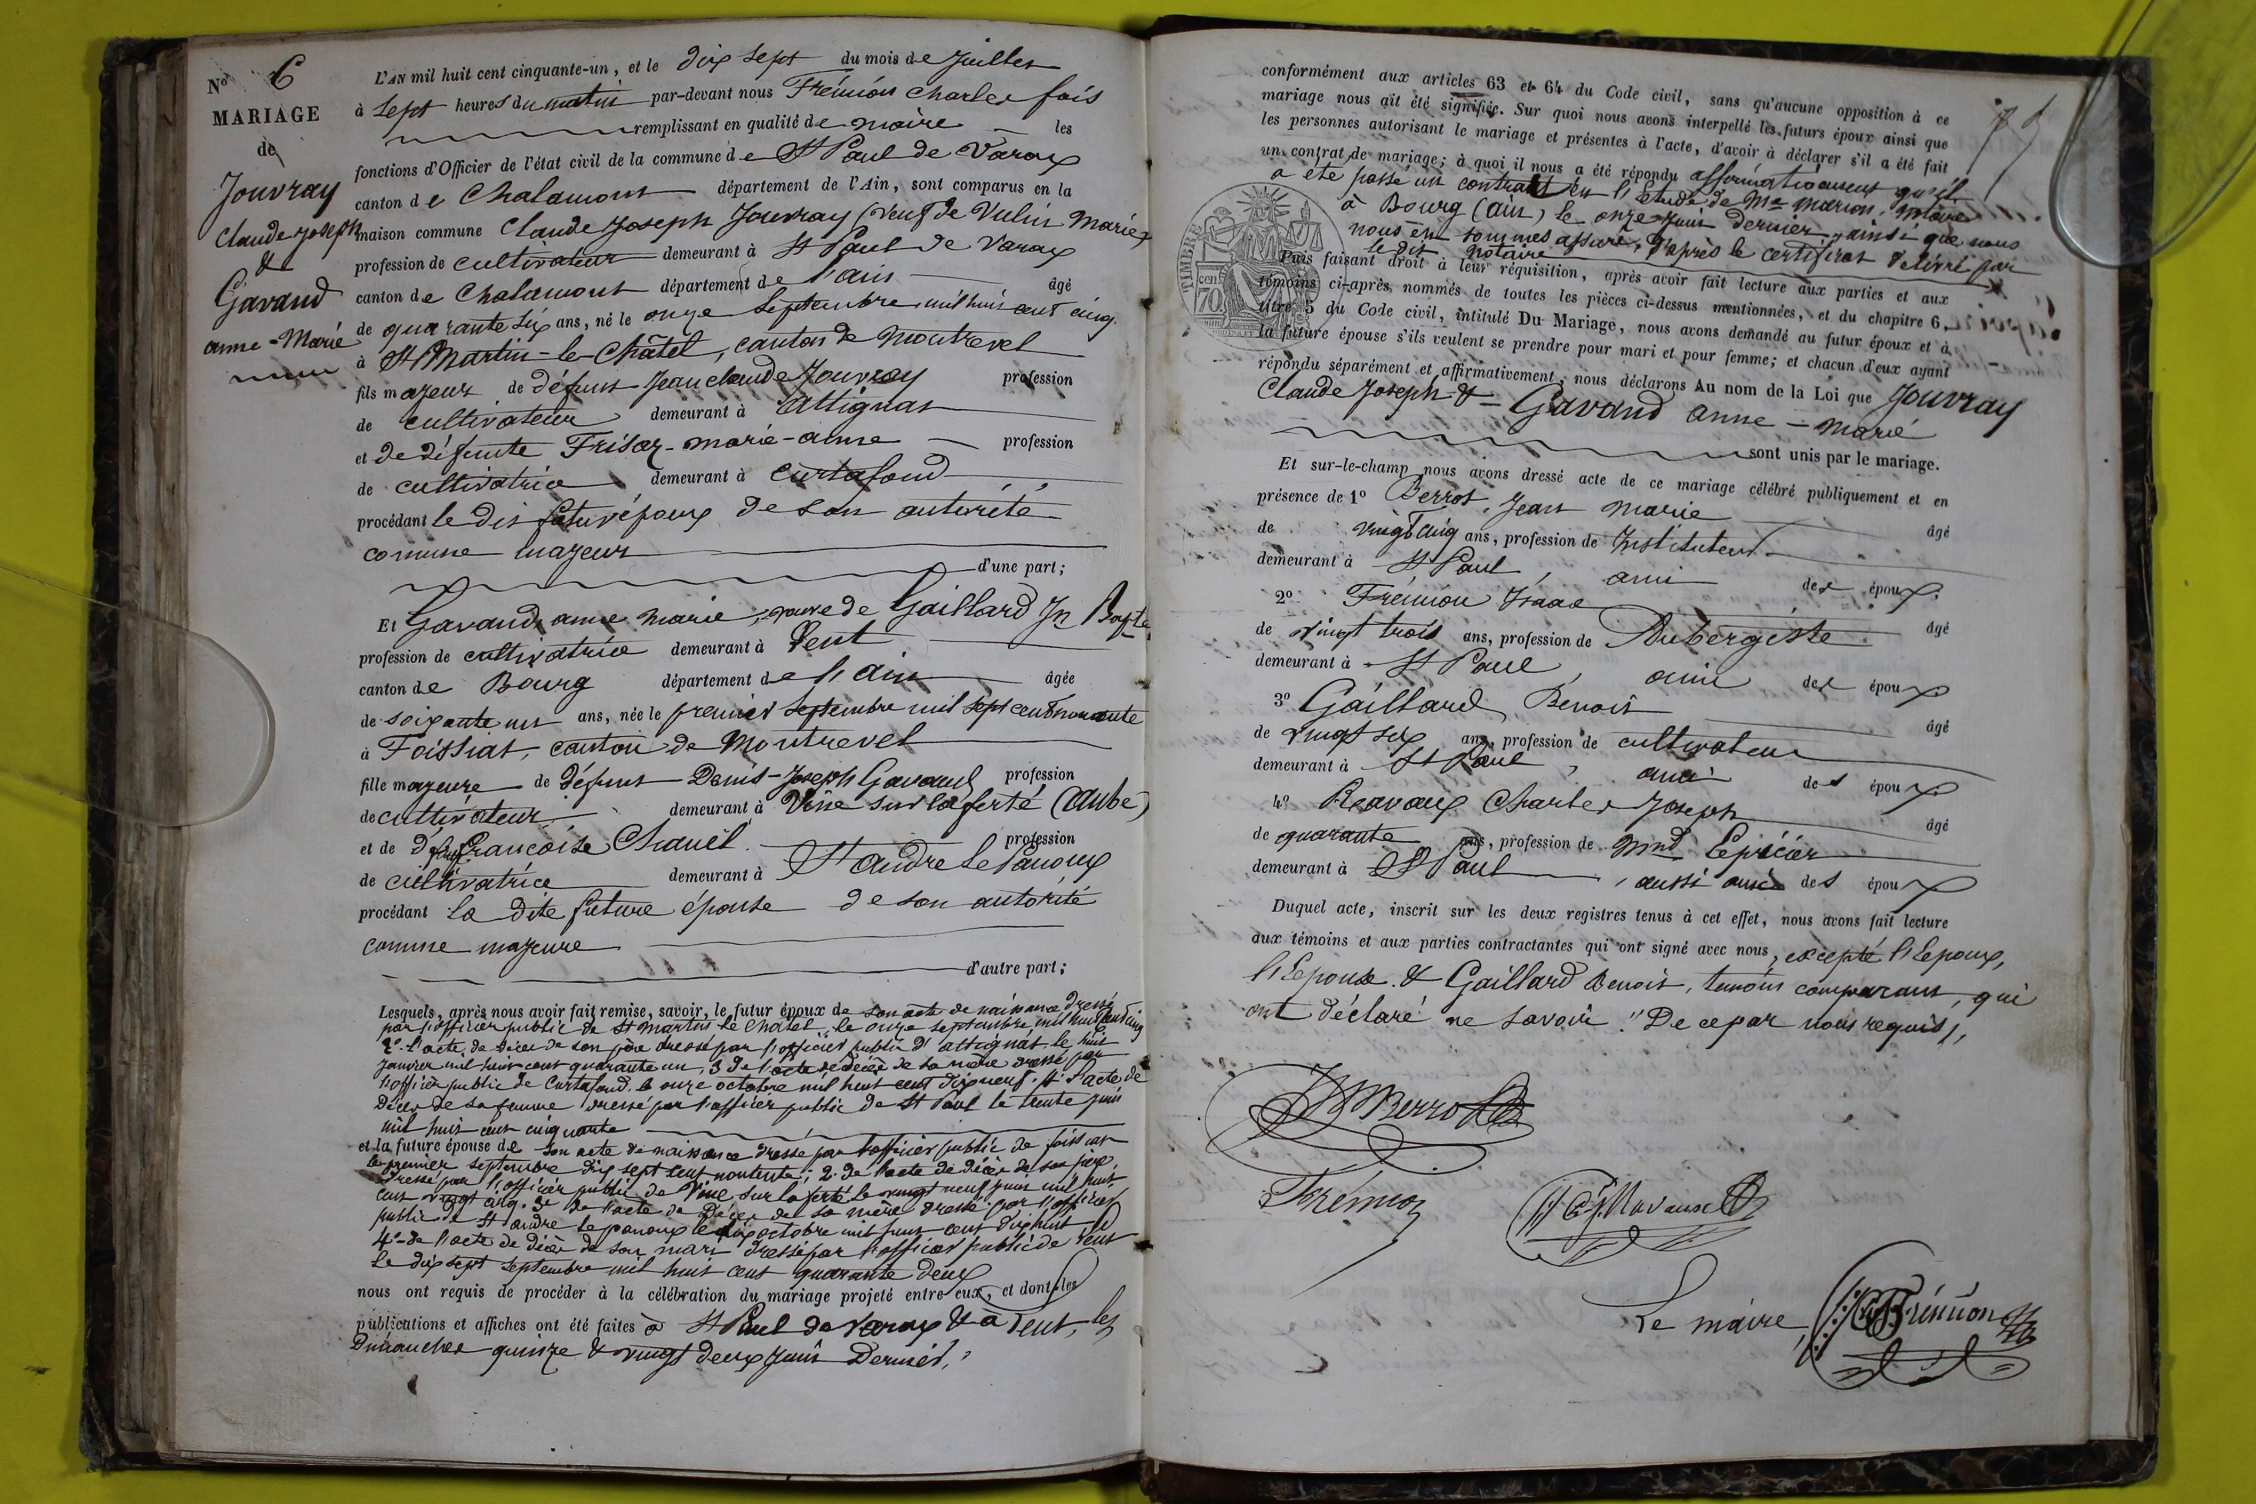 N° 6
MARIAGE
de
Jouvray
Claude Joseph
&
Gavand
anne-Marie
L'AN mil huit cent cinquante-un, et le dix sept du mois de Juillet
à sept heures du matin par-devant nous Frémion Charles fais
remplissant en qualité de maire les
fonctions d'Officier de l'état civil de la commune de St Paul de Varax
canton de Chalamont département de l'Ain, sont comparus en la
maison commune Claude Joseph Jouvray (veuf de Vulin Marie)
profession de cultivateur demeurant à St Paul de Varax
canton de Chalamont département de l'ain âgé
de quarante six ans, né le onze Septembre mil huit cent cinq
à St Martin-le-Châtel, canton de Montrevel
fils majeur de défunt Jean claude Jouvray profession
de cultivateur demeurant à attignat
et de défunte Frisar-marie-anne profession
de cultivatrice demeurant à Curtafond
procédant le dit futur époux de son autorité
comme majeur
d'une part;
Et Gavand, anne marie, veuve de Gaillard Jn Bapte
profession de cultivatrice demeurant à Dent
canton de Bourg département de l'ain âgée
de soixante un ans, née le premier septembre mil sept cent nonante
à Foissiat, canton de Montrevel
fille majeure de défunt Denis-Joseph Gavand profession
de cultivateur demeurant à Vine sur la ferté (Aube)
et de défte françoise Chanel profession
de cultivatrice demeurant à St andré le Panoux
procédant la dite future épouse de son autorité
comme majeure
d'autre part;
Lesquels, après nous avoir fait remise, savoir, le futur époux de son acte de naissance dressé
par l'officier public de St Martin le Châtel, le onze septembre mil huit cent cinq
2° l'acte de décès de son père dressé par l'officier public d'attignat le huit
janvier mil huit cent quarante un, 3 de l'acte de décès de sa mère dressé par
l'officier public de Curtafond le onze octobre mil huit cent dix neuf. 4° l'acte de
décès de sa femme dressé par l'officier public de St Paul le trente juin
mil huit cent cinquante
et la future épouse de son acte de naissance dressé par l'officier public de foissiat
le premier septembre dix sept cent nonante; 2. de l'acte de décès de son père
dressé par l'officier public de Vine sur la ferté le vingt neuf juin mil huit
cent vingt cinq. 3° de l'acte de décès de sa mère dressé par l'officier
public de St andré le panoux le dix octobre mil huit cent dix huit
4°-de l'acte de décès de son mari dressé par l'officier public de Dent
le dix sept septembre mil huit cent quarante deux
nous ont requis de procéder à la célébration du mariage projeté entre eux, et dont les
publications et affiches ont été faites à St Paul de Varax & à Dent, les
Dimanches quinze & vingt deux Juin Dernier,
75
conformément aux articles 63 et 64 du Code civil, sans qu'aucune opposition à ce
mariage nous ait été signifiée. Sur quoi nous avons interpellé les futurs époux ainsi que
les personnes autorisant le mariage et présentes à l'acte, d'avoir à déclarer s'il a été fait
un contrat de mariage; à quoi il nous a été répondu affirmativement qu'il
a été passé un contrat en l'Etude de Me marion, notaire
à Bourg (ain) le onze Juin dernier, ainsi que nous
nous en sommes assuré, d'après le certificat délivré par
le dit notaire
TIMBRE
70 cent
Puis faisant droit à leur réquisition, après avoir fait lecture aux parties et aux
témoins ci-après nommés de toutes les pièces ci-dessus mentionnées, et du chapitre 6,
titre 5 du Code civil, intitulé Du Mariage, nous avons demandé au futur époux et à
la future épouse s'ils veulent se prendre pour mari et pour femme; et chacun d'eux ayant
répondu séparément et affirmativement, nous déclarons Au nom de la Loi que Jouvray
Claude Joseph & Gavand anne-marie
sont unis par le mariage.
Et sur-le-champ nous avons dressé acte de ce mariage célébré publiquement et en
présence de 1° Berrot, Jean Marie âgé
de vingt cinq ans, profession de Instituteur
demeurant à St Paul, ami des époux
2° Frémion Isaac âgé
de vingt trois ans, profession de Aubergiste
demeurant à St Paul, ami des époux
3° Gaillard Benoit âgé
de vingt six ans, profession de cultivateur
demeurant à St Paul, ami des époux
4° Ravaux Charles Joseph âgé
de quarante ans, profession de Mnd Epicier
demeurant à St Paul, aussi ami des époux
Duquel acte, inscrit sur les deux registres tenus à cet effet, nous avons fait lecture
aux témoins et aux parties contractantes qui ont signé avec nous, excepté l'Epoux,
l'Epouse & Gaillard Benoit, temoin comparant, qui
ont déclaré ne savoir. De ce par nous requis,
JM Berrot
Frémion
C J Ravaux
Le maire, C Frémion